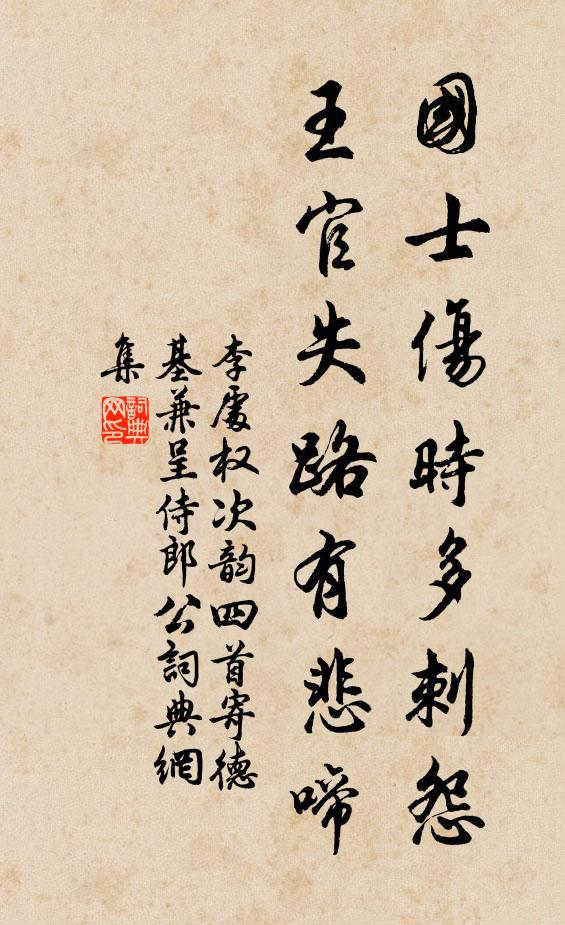 國士傷時多刺怨
王官失路有悲啼
李處权次韵四首寄德
基兼呈侍郎公詞典網
集
詞典
网印